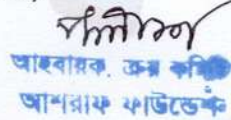 আহবায়ক, ক্রয় কমিটি
আশরাফ ফাউন্ডেশন